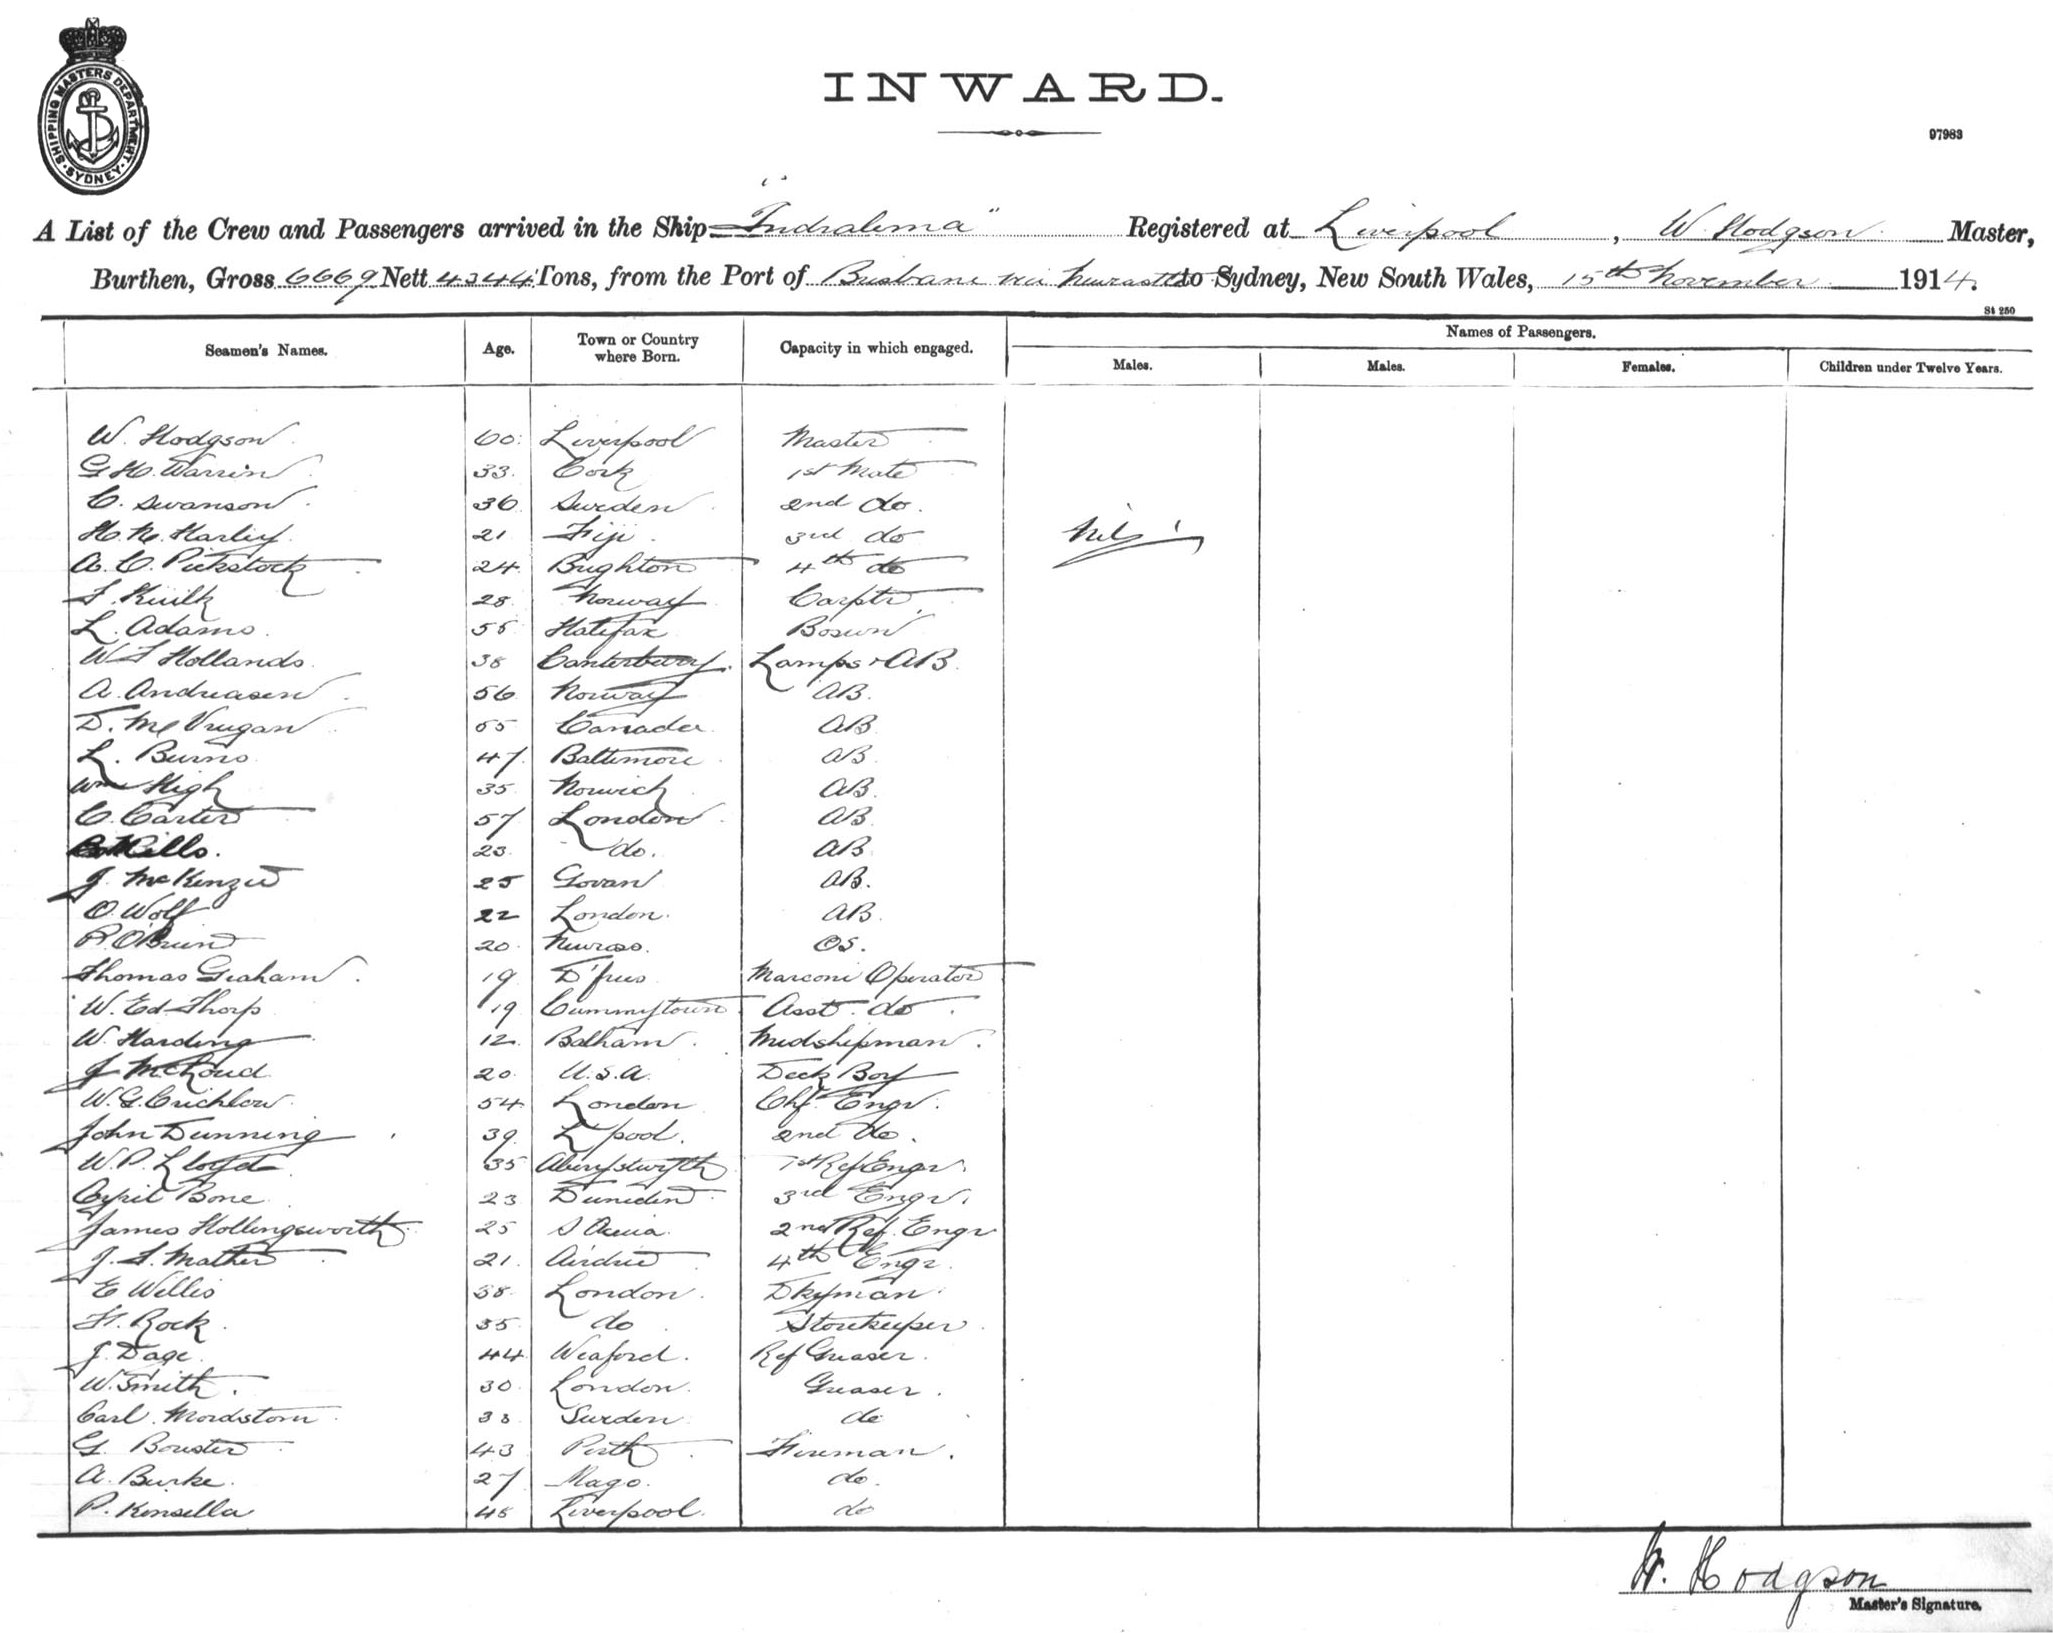 SHIPPING MASTERS DEPARTMENT · SYDNEY ·
INWARD.
97983
A List of the Crew and Passengers arrived in the Ship "Indralema" Registered at Liverpool, W. Hodgson Master,
Burthen, Gross 6669 Nett 4344 Tons, from the Port of Brisbane via Newcastle to Sydney, New South Wales, 15th November 1914.
St 250
Seamen's Names. Age. Town or Country where Born. Capacity in which engaged. Names of Passengers.
Males. Males. Females. Children under Twelve Years.
W. Hodgson 60 Liverpool Master
G H. Warrin 33 Cork 1st Mate
C. Swanson 36 Sweden 2nd do.
H. N. Harley 21 Fiji 3rd do Nil
A. C. Pickstock 24 Brighton 4th do
F. Kuilk 28 Norway Carptr
L. Adams 55 Halifax Bosun
W F Hollands 38 Canterbury Lamps & AB.
A. Andreasen 56 Norway AB.
D. Mc Vrugan 55 Canada AB
L. Burns 47 Baltimore AB
Wm High 35 Norwich AB.
C. Carter 57 London AB
Hills. 23 do. AB
J. McKenzie 25 Govan AB.
O. Wolf 22 London. AB.
P. O'Brien 20 Newross. OS.
Thomas Graham 19 D'fries Marconi Operator
W. Ed Thorp 19 Cummytown Asst. do.
W. Harding 12 Balham Midshipman.
J McLoud 20 U.S.A. Deck Boy
W. G. Crichlow 54 London Chf. Engr.
John Dunning 39 L'pool. 2nd do.
W. P. Lloyd 35 Aberystwyth 1st Ref Engr.
Cyril Bone 23 Dunedin 3rd Engr.
James Hollingsworth 25 2nd Ref. Engr
J. S. Mather 21 Airdrie 4th Engr.
E Willis 38 London. Dkyman
H. Rock 35 do Storekeeper
J. Dage. 44 Weaford. Ref Greaser.
W. Smith. 30 London. Greaser.
Carl. Mordstorm 33 Sweden do
G. Bouster 43 Perth Fireman.
A. Burke. 27 Mago. do.
P. Kinsella 45 Liverpool. do
W. Hodgson
Master's Signature.